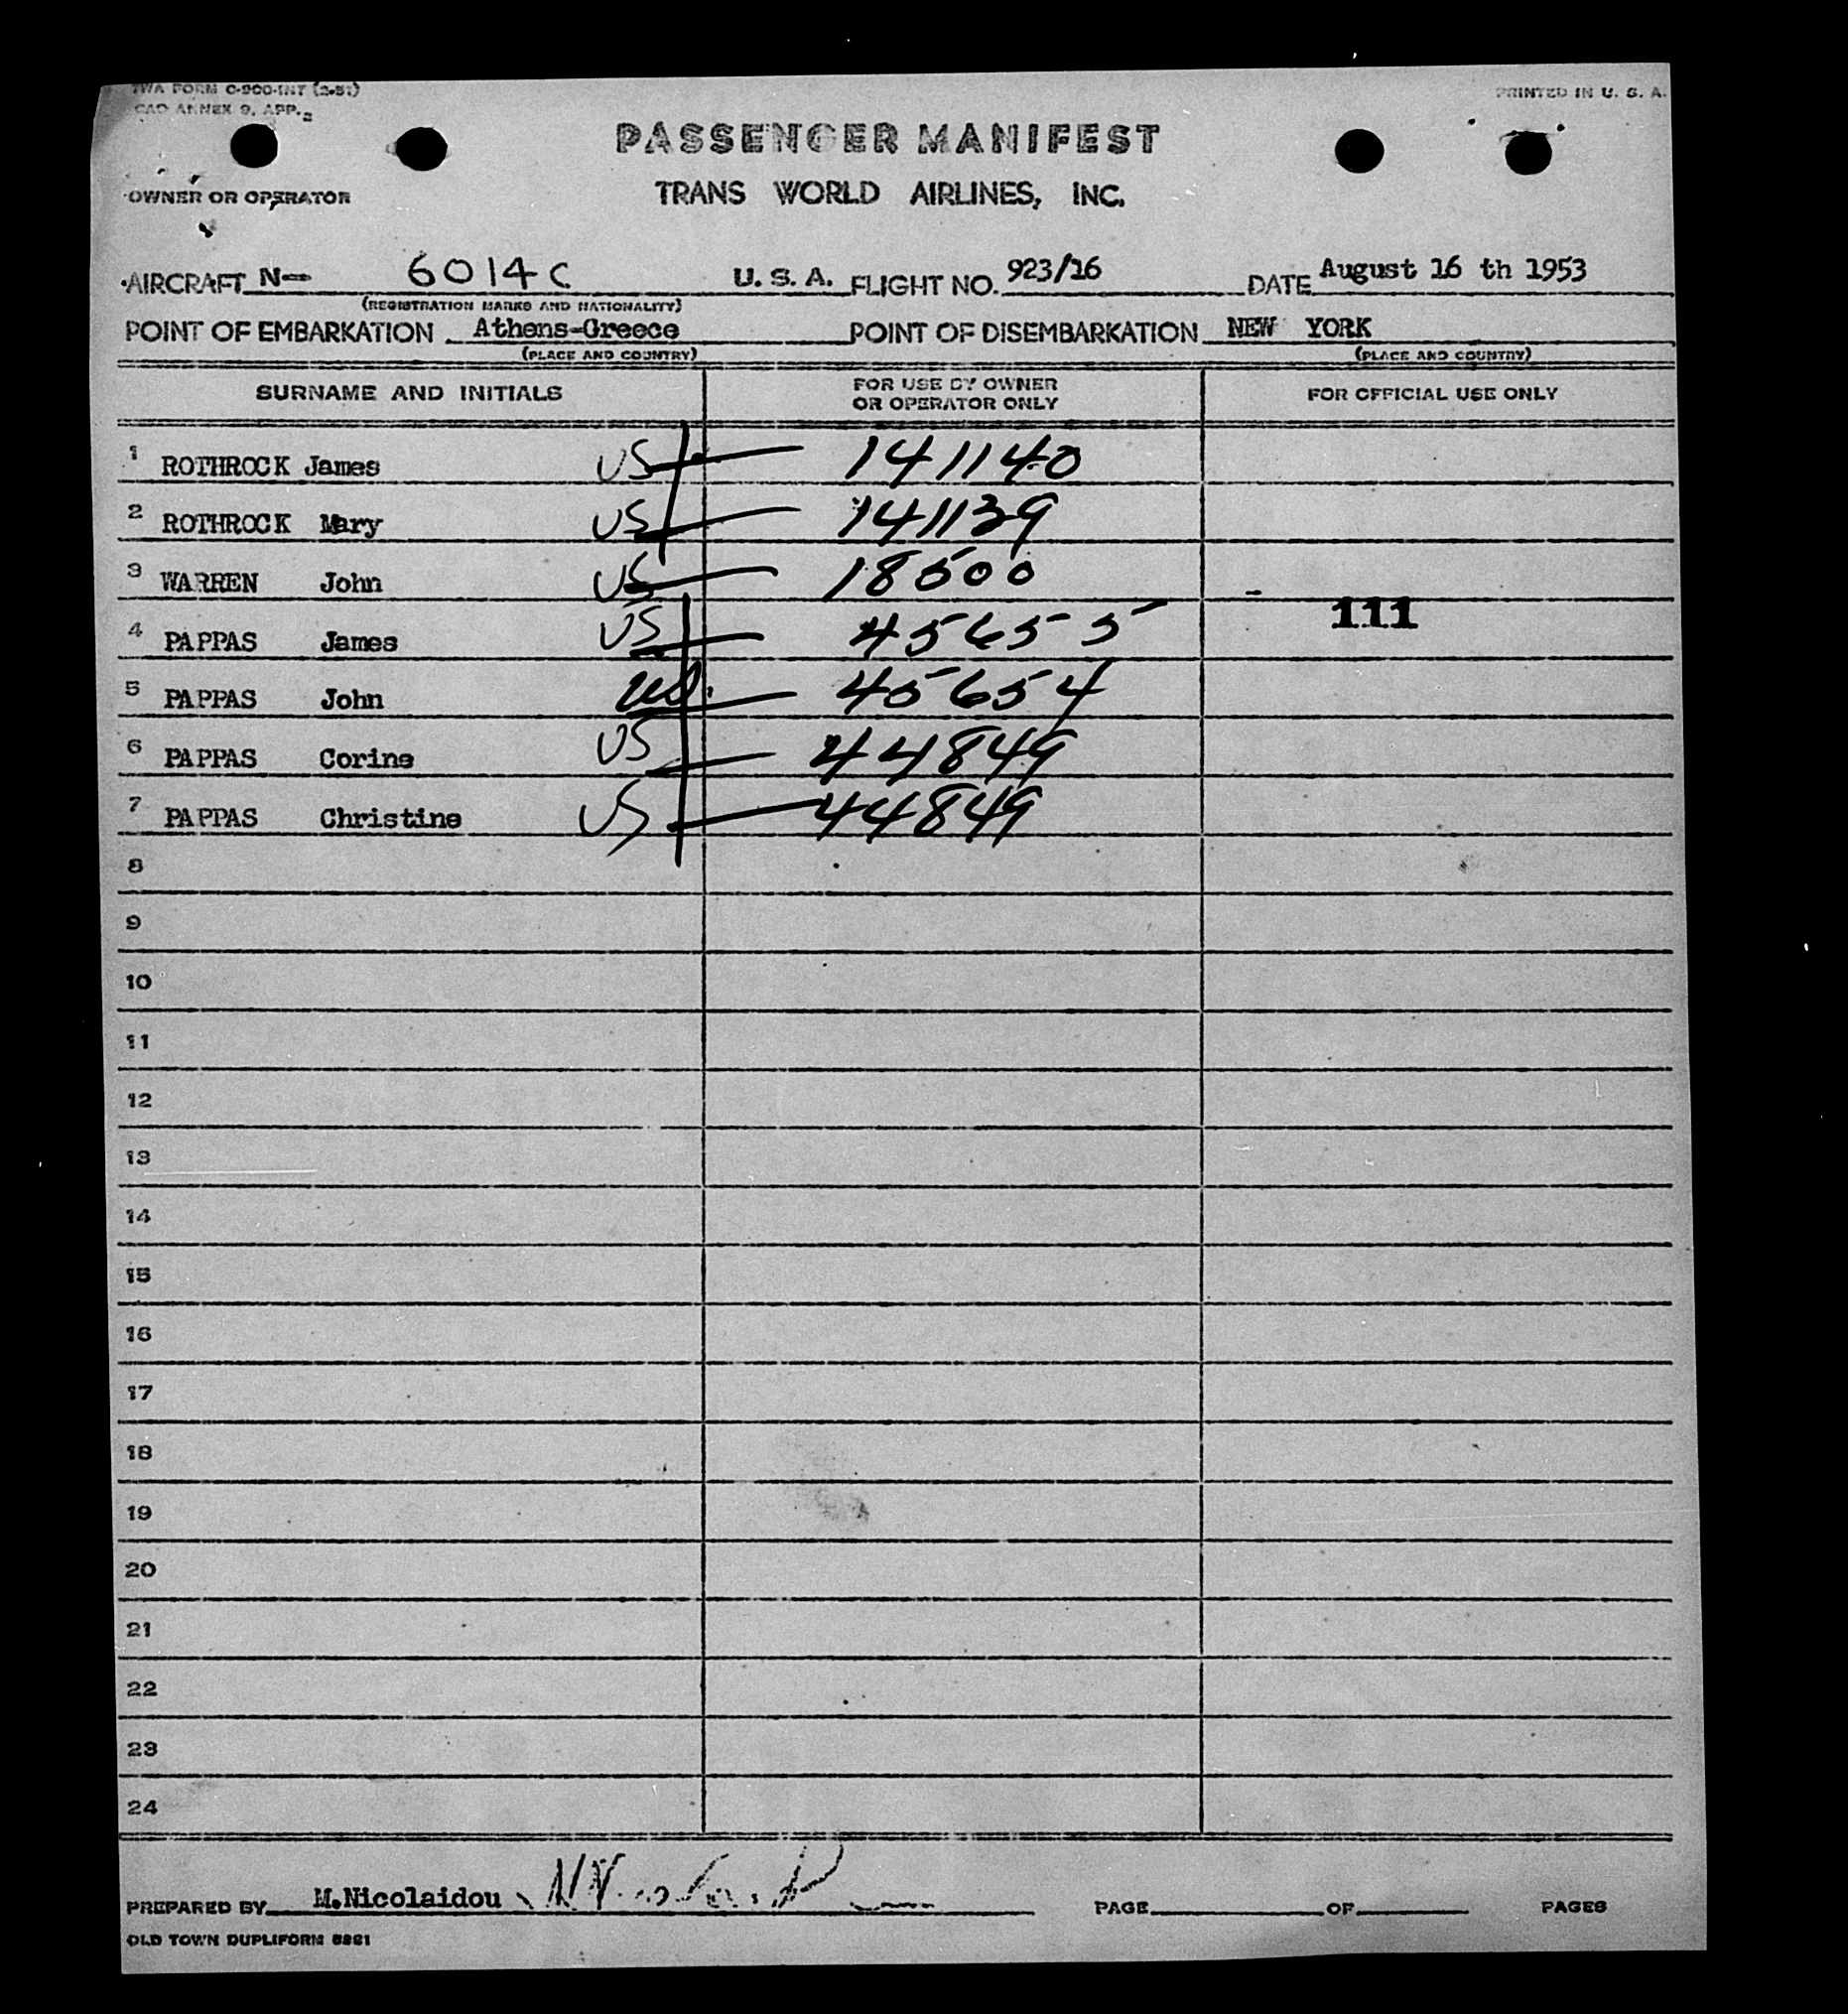 TWA FORM C-900-INT (2-51)
PRINTED IN U. S. A.
CAO ANNEX 9, APP. 2
PASSENGER MANIFEST
OWNER OR OPERATOR
TRANS WORLD AIRLINES, INC.
AIRCRAFT N- 6014C U. S. A. FLIGHT NO. 923/16 DATE August 16 th 1953
(REGISTRATION MARKS AND NATIONALITY)
POINT OF EMBARKATION Athens-Greece POINT OF DISEMBARKATION NEW YORK
(PLACE AND COUNTRY) (PLACE AND COUNTRY)
SURNAME AND INITIALS FOR USE BY OWNER OR OPERATOR ONLY FOR OFFICIAL USE ONLY
1 ROTHROCK James US 141140
2 ROTHROCK Mary US 141139
3 WARREN John US 18500
4 PAPPAS James US 45655 111
5 PAPPAS John US. 45654
6 PAPPAS Corine US 44849
7 PAPPAS Christine US 44849
8
9
10
11
12
13
14
15
16
17
18
19
20
21
22
23
24
PREPARED BY M.Nicolaidou PAGE OF PAGES
OLD TOWN DUPLIFORM